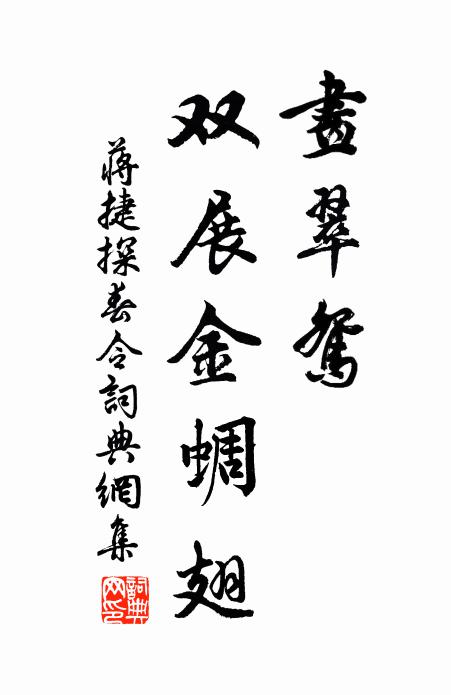 畫翠鴛
双展金蜩翅
蔣捷探春令詞典網集
詞典网印